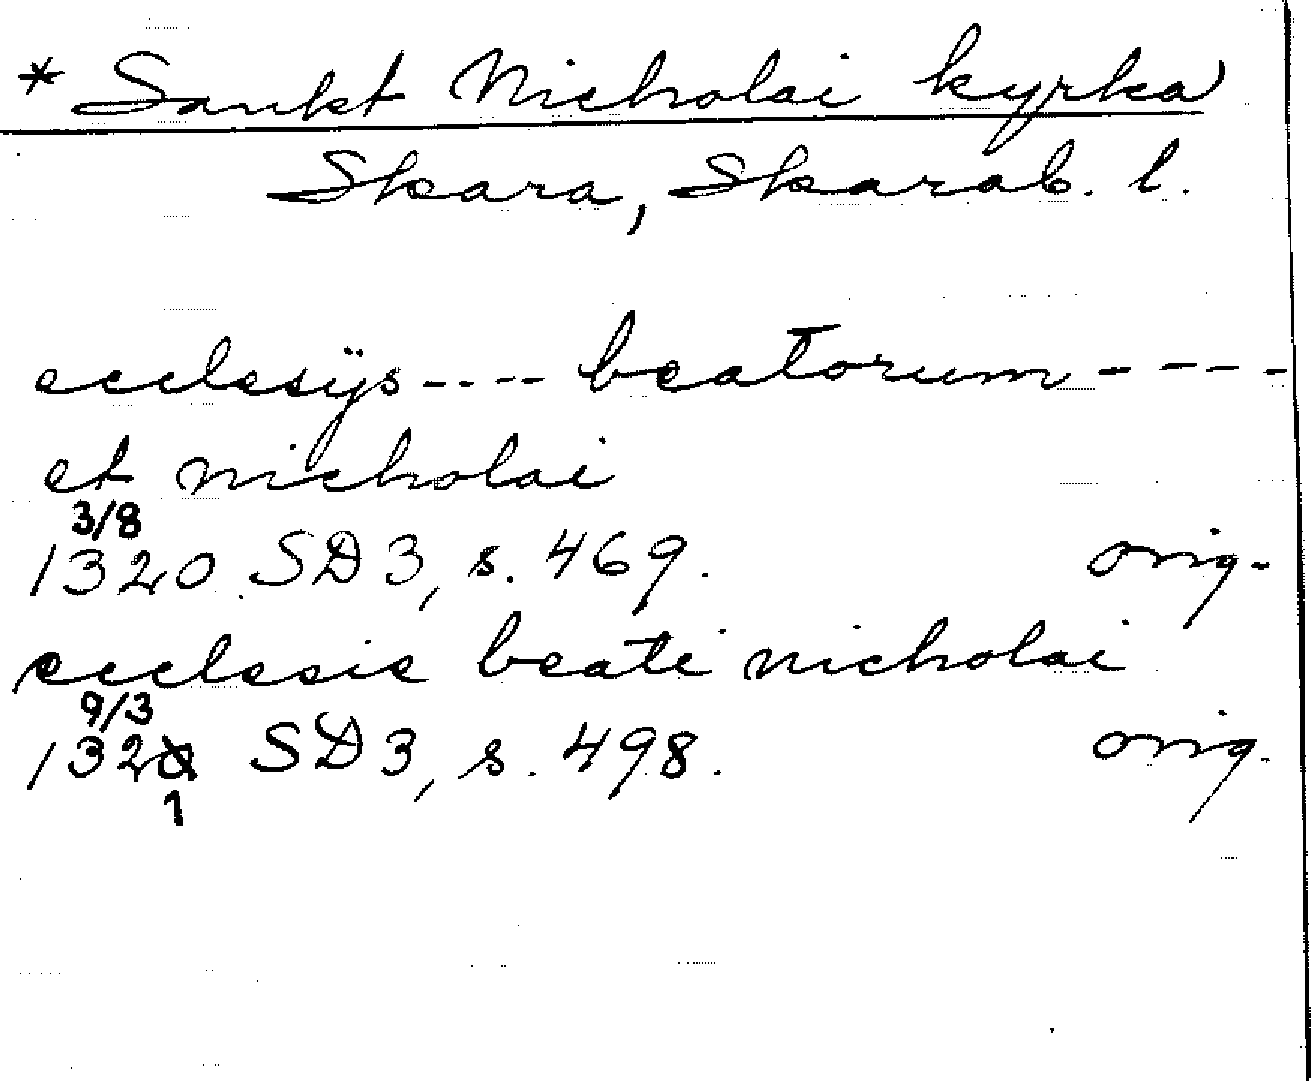 * Sankt Nicholai kyrka
Skara, Skarab. l.
ecclesijs---- beatorum----
et nicholai
3/8
1320 SD 3, s. 469. orig.
ecclesie beati nicholai
9/3
1321 SD 3, s. 498. orig.